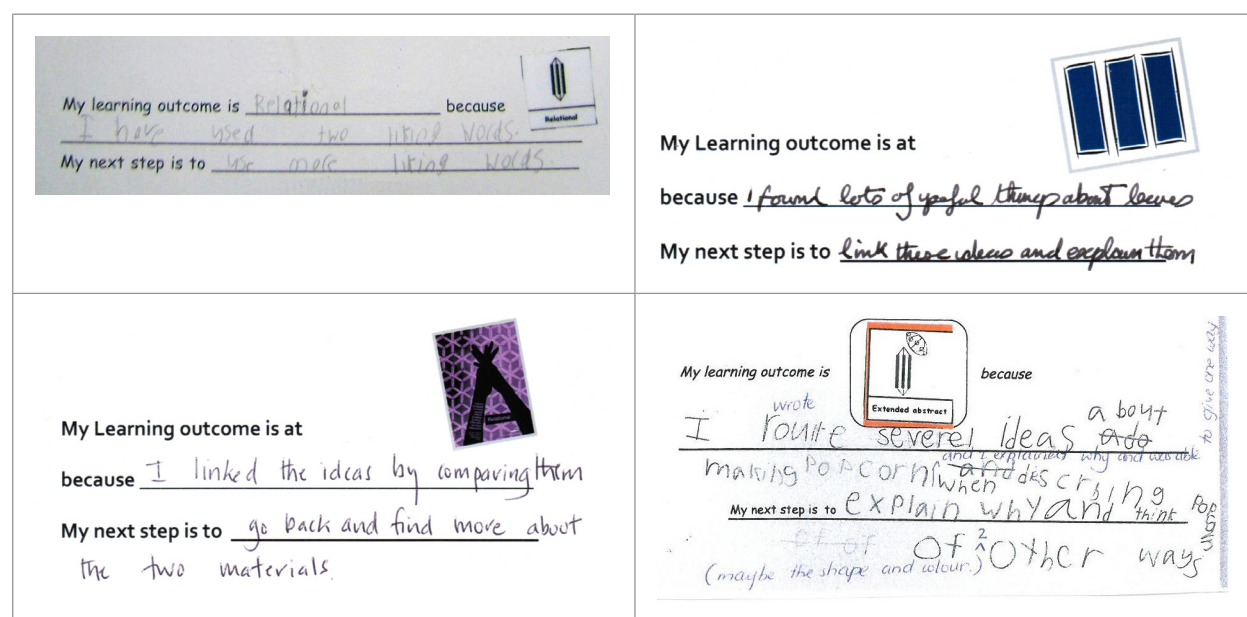 My learning outcome is Relational because
Relational
I have used two liking words.
My next step is to use more liking words.
My Learning outcome is at
because I found lots of useful things about leaves
My next step is to link these ideas and explain them
My Learning outcome is at
because I linked the ideas by comparing them
My next step is to go back and find more about
the two materials.
My learning outcome is because
Extended abstract
wrote
I rouite severel ideas ado about
and I explained why and was able to give one way
making popcorn and when descrbing popcorn
My next step is to explain why and think
of 2 other ways
(maybe the shape and colour.)